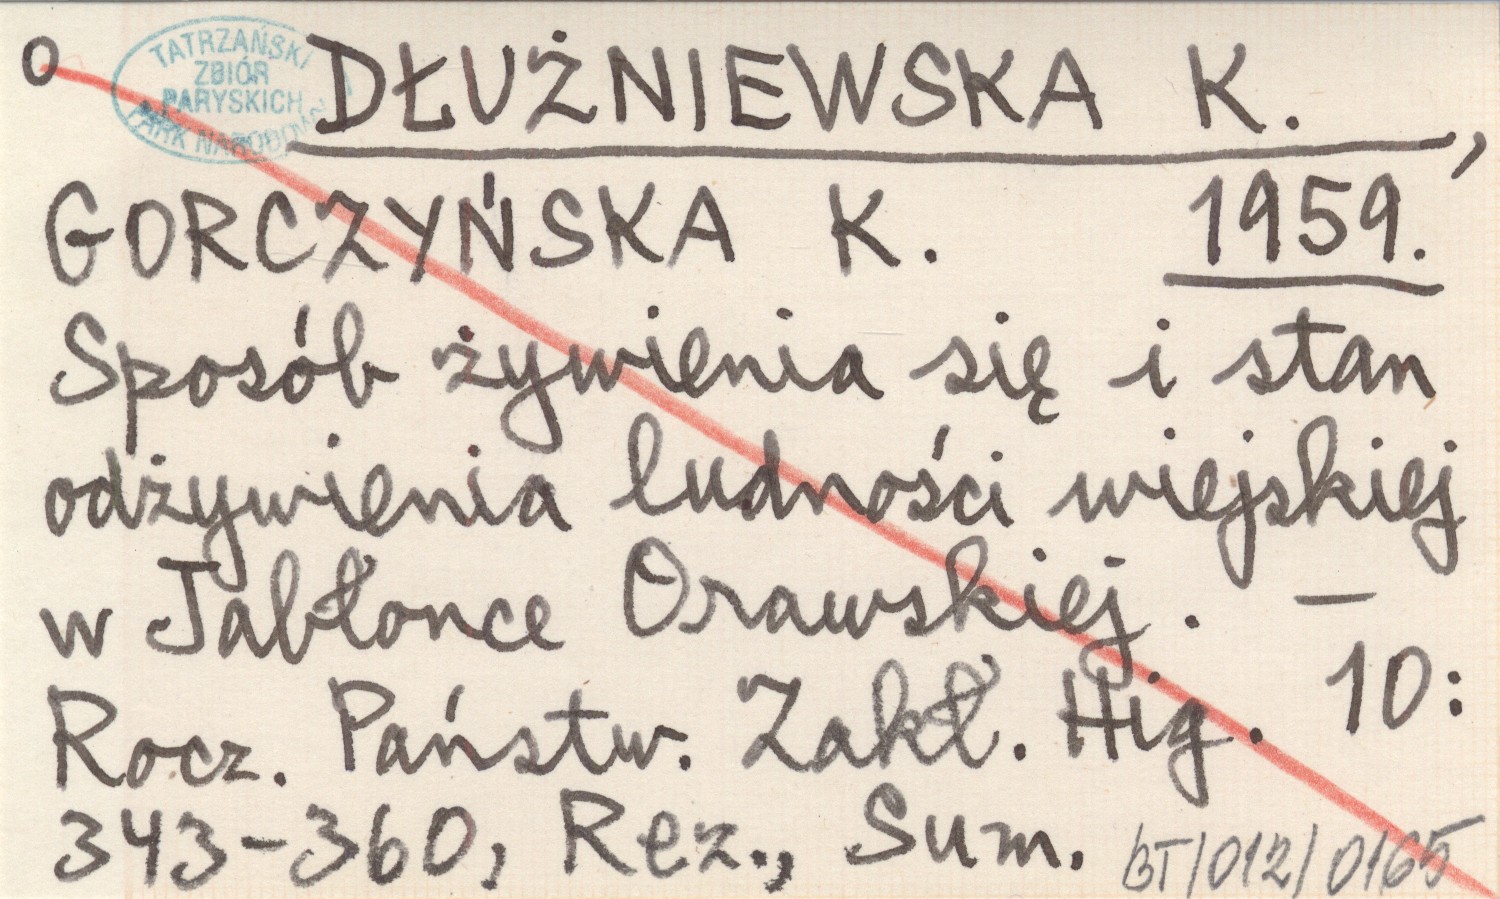 O
TATRZAŃSKI
ZBIÓR
PARYSKICH
PARK NARODOWY
DŁUŻNIEWSKA K.,
GORCZYŃSKA K. 1959.
Sposób żywienia się i stan
odżywienia ludności wiejskiej
w Jabłonce Orawskiej. —
Rocz. Państw. Zakł. Hig. 10:
343-360, Rez., Sum.
BT/012/0165